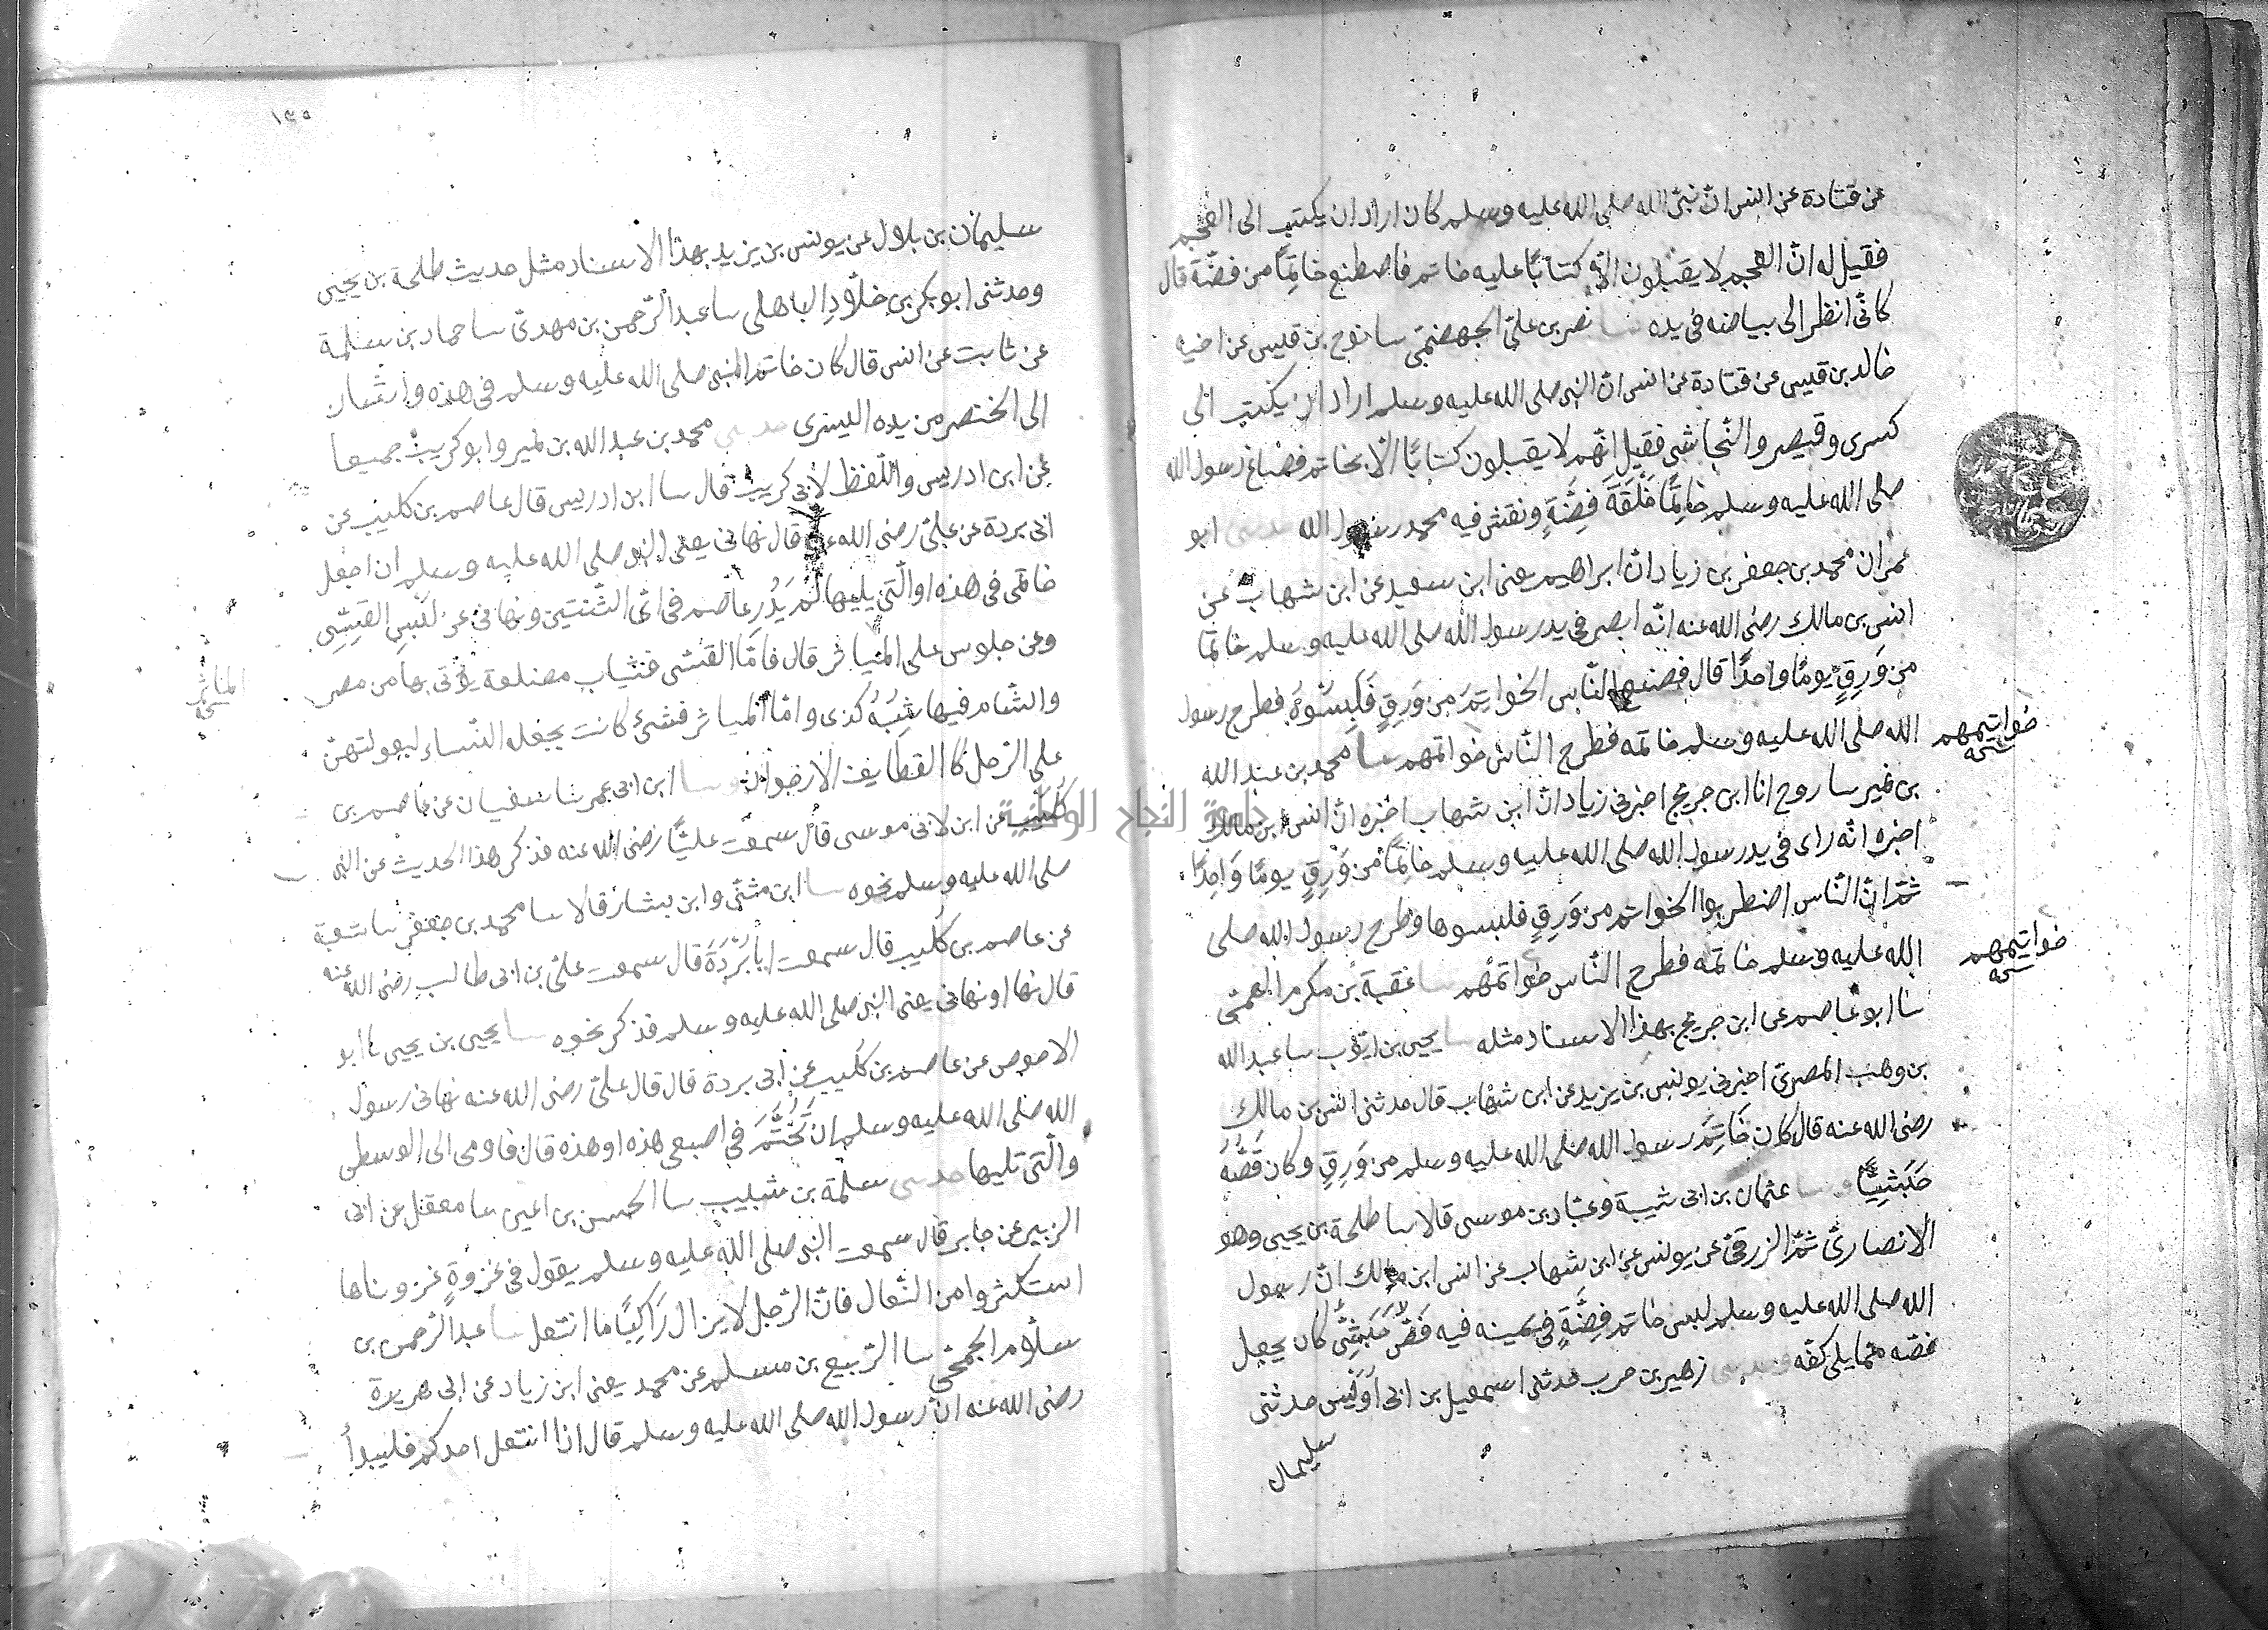 عن قتادة عن انس ان نبى الله صلى الله عليه وسلم كان اراد ان يكتب الى العجم
فقيل له ان العجم لا يقبلون الا كتابًا عليه خاتم فاصطنع خاتِمًا من فضّة قال
كانّى انظر الى بياضه فى يده سا نصر بن علىّ الجهضمّى سا نوح بن قيس عن اخيه
خالد بن قيس عن قتادة عن انس انّ النبى صلى الله عليه وسلم اراد ان يكتب الى
كسرى وقيصر والنّجاشى فقيل انّهم لا يقبلون كتابًا الّا بخاتم فصاغ رسول الله
صلى الله عليه وسلم خاتِمًا حَلْقَةَ فِضَّةٍ ونقش فيه محمد رسول الله حدسى ابو
عمران محمد بن جعفر بن زياد انا ابراهيم يعنى ابن سعيد عن ابن شهاب عن
انس بن مالك رضى الله عنه انّه ابصر فى يد رسول الله صلى الله عليه وسلم خاتمًا
من وَرِقٍ يومًا واحدًا قال فصنع النّاس الخواتِمَ من وَرِقٍ فَلَبِسُوهُ فطرح رسول
الله صلى الله عليه وسلم خاتمه فطرح النّاس خواتمهم سا محمد بن عبد الله
خواتيمهم
نسخه
بن نمير سا روح انا ابن جريج اخبرنى زياد ان ابن شهاب اخبره انّ انس ابن مالك
اخبره انّه راى فى يد رسول الله صلى الله عليه وسلم خاتِمًا من وَرِقٍ يومًا وَاحِدًا
ثمّ انّ النّاس اضطربوا الخواتم من وَرِقٍ فلبسوها وطرح رسول الله صلى
الله عليه وسلم خاتمه فطرح النّاس خواتمهم سا عقبة بن مكرم العمّى
خواتيمهم
نسخه
سا ابو عاصم عن ابن جريج بهذا الاسناد مثله سا يحيى بن ايّوب سا عبد الله
بن وهب المصرىّ اخبرنى يونس بن يزيد عن ابن شهاب قال حدثنى انس بن مالك
رضى الله عنه قال كان خَاتِمُ رسول الله صلى الله عليه وسلم من وَرِقٍ وكان فَصُّهُ
حَبَشِيًّا وسا عثمان بن ابى شيبة وعبّاد بن موسى قالا سا طلحة بن يحيى وهو
الانصارىّ ثمّ الزرقىّ عن يونس عن ابن شهاب عن انس ابن مالك انّ رسول
الله صلى الله عليه وسلم لبس خاتم فِضَّةٍ فى يمينه فيه فَصٌّ حَبَشِىٌّ كان يجعل
فصّه ممّا يلى كفّه وحدسى زهير بن حرب حدثنى اسمعيل بن ابى اُوَيْس حدثنى
سليمان
١٣٥
سليمان بن بلال عن يونس بن يزيد بهذا الاسناد مثل حديث طلحة بن يحيى
وحدثنى ابو بكر بن خلّادٍ الباهلى سا عبد الرّحمن بن مهدىّ سا حماد بن سلمة
عن ثابت عن انس قال كان خاتم النبى صلى الله عليه وسلم فى هذه واشار
الى الخنصر من يده اليسرى حدسى محمد بن عبد الله بن نمير وابو كريب جميعا
عن ابن ادريس واللّفظ لابى كريب قال سا ابن ادريس قال عاصم بن كليب عن
ابى بردة عن علىّ رضى الله عنه قال نهانى يعنى النبى صلى الله عليه وسلم ان اجعل
خاتمى فى هذه او الّتى يليها لم يَدْرِ عاصم فى اىّ الثّنتين ونهانى عن لُبسِ القَسّىِ
وعن جلوس على المياثر قال فامّا القسّى فثياب مضلعة يؤتى بها من مصر
المياثر
نسخه
والشام فيها شِبْهُ كذى وامّا المياثر فشىٔ كانت يجعله النّساء لبعولتهنّ
على الرّحل كالقطايف الارجوان وسا ابن ابى عمر سا سفيان عن عاصم بن
كُلَيْبٍ عن ابن لابى موسى قال سمعت عليًّا رضى الله عنه فذكر هذا الحديث عن النبى
صلى الله عليه وسلم نحوه سا ابن مثنّى وابن بشار قالا سا محمد بن جعفر سا شعبة
عن عاصم بن كُليب قال سمعت ابَا بُرْدَةَ قال سمعت علىّ بن ابى طالب رضى الله عنه
قال نهى او نهانى يعنى النبى صلى الله عليه وسلم فذكر نحوه سا يحيى بن يحيى انا ابو
الاحوص عن عاصم بن كُلَيب عن ابى بردة قال قال علىّ رضى الله عنه نهانى رسول
الله صلى الله عليه وسلم ان اَتَخَتَّمَ فى اصبعى هذه او هذه قال فاومى الى الوسطى
والّتى تليها حدسى سلمة بن شبيب سا الحسن بن اعين سا معقل عن ابى
الزبير عن جابر قال سمعت النبى صلى الله عليه وسلم يقول فى غزوةٍ غزوناها
استكثروا من النّعال فانّ الرّجل لا يزال رَاكِبًا ما انتعل سا عبد الرّحمن بن
سلّام الجمحّى سا الرّبيع بن مسلم عن محمد يعنى ابن زياد عن ابى هريرة
رضى الله عنه انّ رسول الله صلى الله عليه وسلم قال اذا انتعل احدكم فليبدأ
جامعة النجاح الوطنية